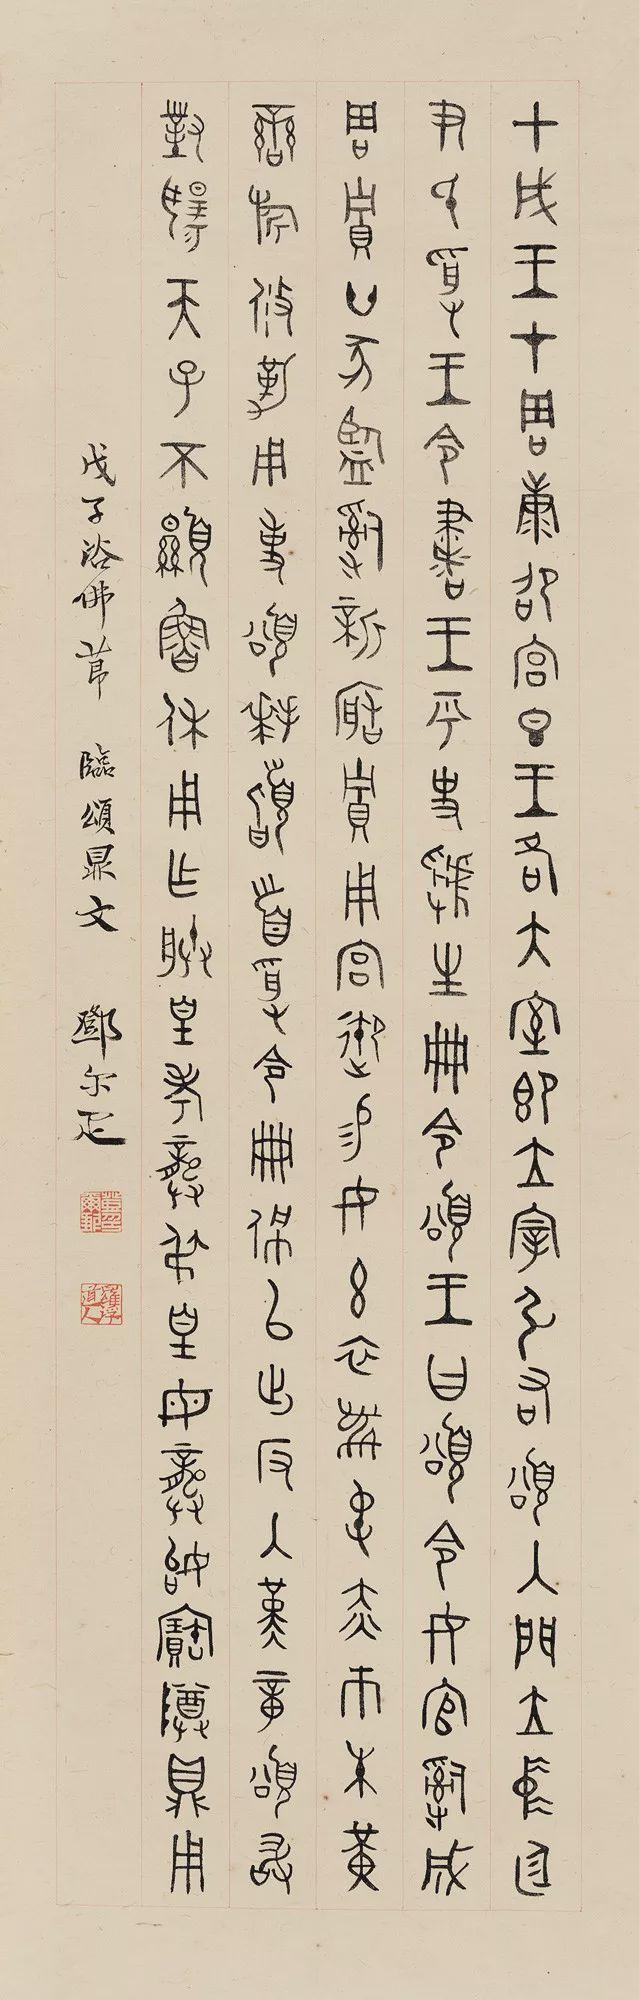 甲戌王才周康卲宮旦王各大室即立宰引右頌入門立中廷
尹氏受王令書王乎史虢生冊令頌王曰頌令女官𤔲成
周貯廿家監𤔲新造貯用宮御易女玄衣黹屯赤巿朱黃
䜌旂攸勒用事頌拜𩒨首受令冊佩以出反入堇章頌敢
對揚天子不顯魯休用乍朕皇考龏弔皇母龏始寶尊鼎用
戊子浴佛節 臨頌鼎文 鄧尔疋